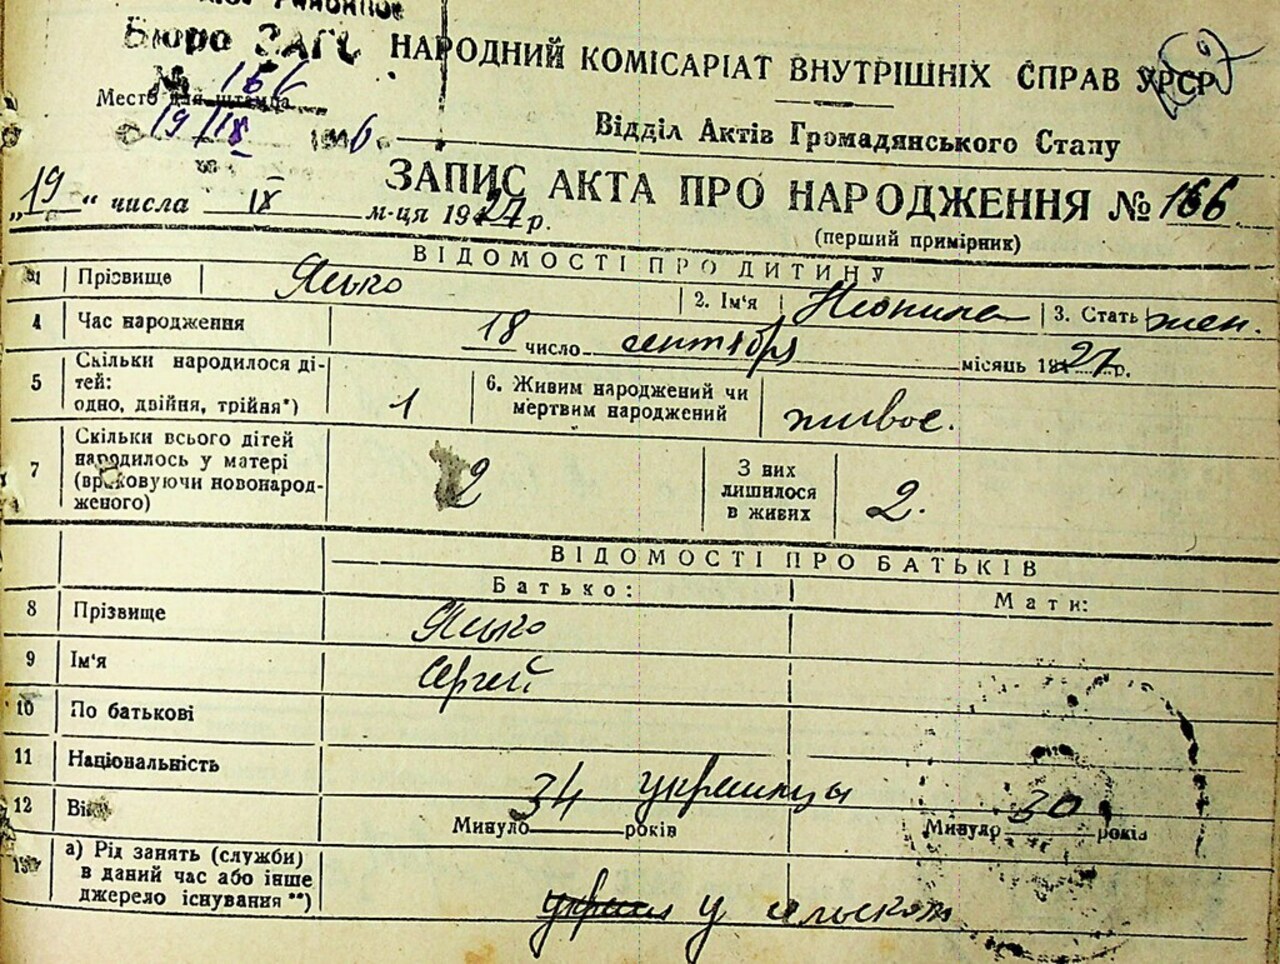 Бюро ЗАГС НАРОДНИЙ КОМІСАРІАТ ВНУТРІШНІХ СПРАВ УРСР
№ 166
Место для штампа
19/IX 1946. Відділ Актів Громадянського Стану
ЗАПИС АКТА ПРО НАРОДЖЕННЯ № 166
„19“ числа IX м-ця 1927 р.
(перший примірник)
ВІДОМОСТІ ПРО ДИТИНУ
1 Прізвище Ясько 2. Ім'я Неонила 3. Стать жен.
4 Час народження 18 число сентября місяць 1927 р.
5 Скільки народилося ді-
тей:
одно, двійня, трійня*) 1 6. Живим народжений чи
мертвим народжений живое.
7 Скільки всього дітей
народилось у матері
(враховуючи новонарод-
женого) 2 З них
лишилося
в живих 2.
ВІДОМОСТІ ПРО БАТЬКІВ
Батько: Мати:
8 Прізвище Ясько
9 Ім'я Сергей
10 По батькові
11 Національність украинцы
12 Вік Минуло 34 років Минуло 30 років
13 а) Рід занять (службы)
в даний час або інше
джерело існування **) у сельском